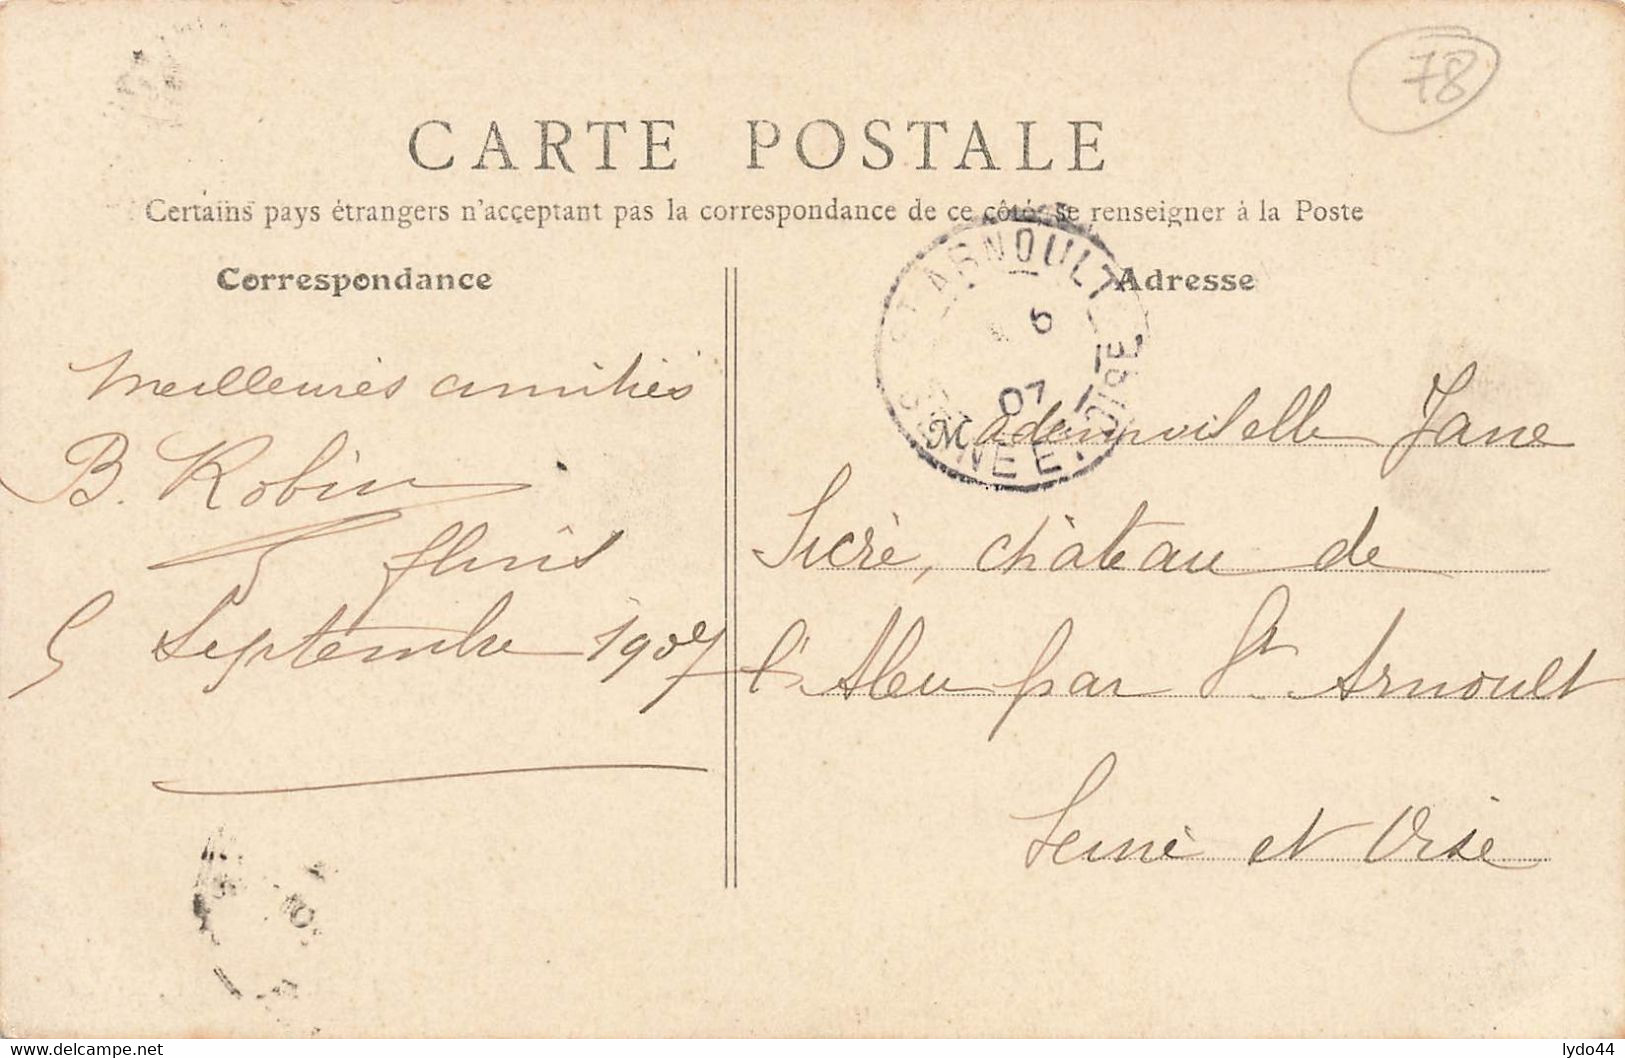 78
CARTE POSTALE
Certains pays étrangers n'acceptent pas la correspondance de ce côté, se renseigner à la Poste
Correspondance
Adresse
ST ARNOULT
6
07
SEINE ET OISE
Meilleures amitiés
B. Robin
flins
5 Septembre 1907
Mademoiselle Jane
Sicre, château de
l'Aleu par St Arnoult
Seine et Oise
www.delcampe.net
lydo44